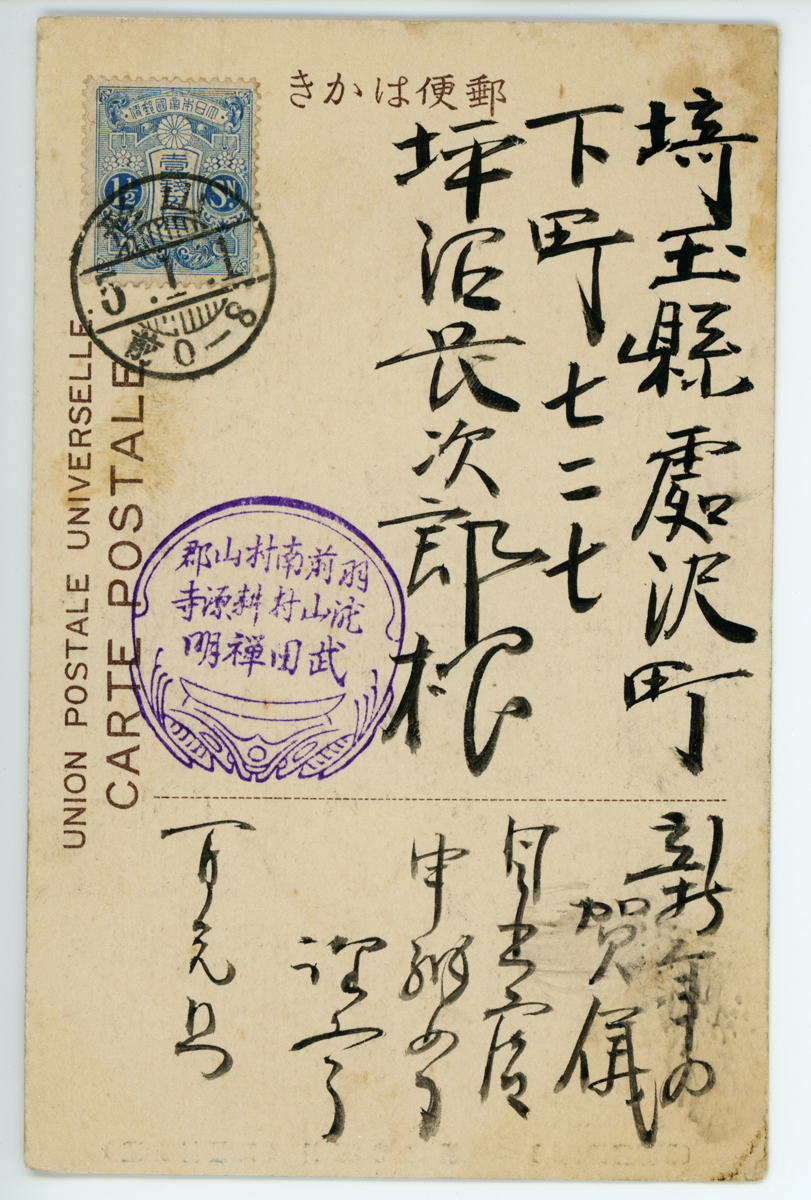 郵便はかき
埼玉縣處沢町
下町七二七
坪沼長次郎様
新年の
賀儀
目出度
申納め
謹言
一月元旦
羽前南村山郡
瀧山村耕源寺
武田禅明
大日本帝國郵便
壹錢五厘
1½ Sn.
山形
5.1.1
前0-8
UNION POSTALE UNIVERSELLE.
CARTE POSTALE